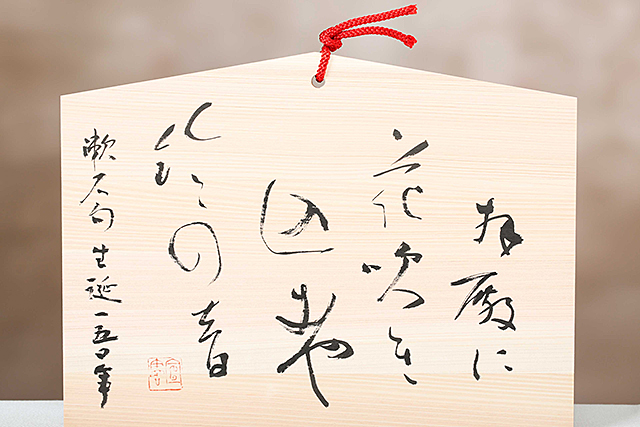 拝殿に
花吹き
込むや
鈴の音
漱石句 生誕一五〇年